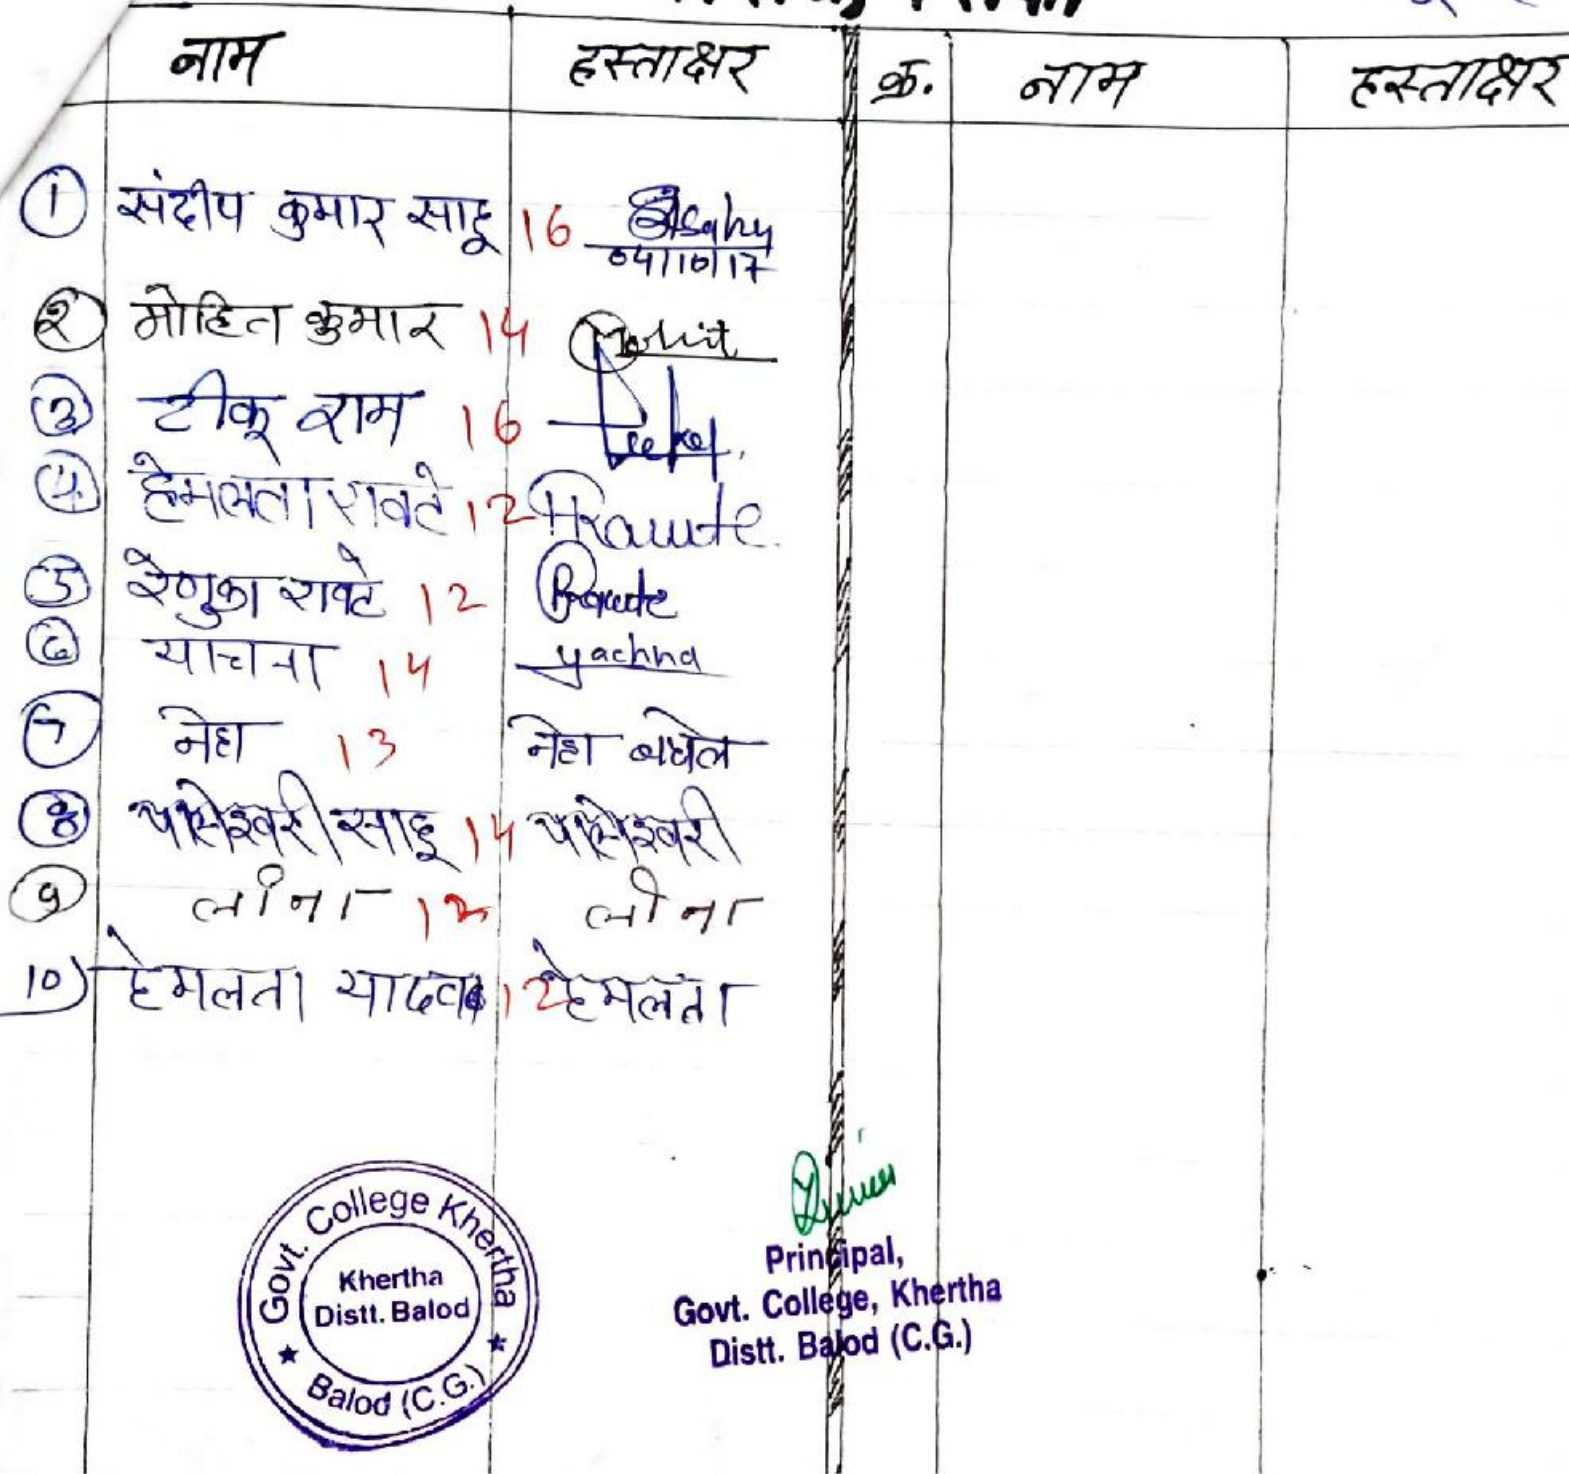 नाम हस्ताक्षर क्र. नाम हस्ताक्षर
① संदीप कुमार साहू 16 Sahu
04/10/17
② मोहित कुमार 14 Mohit
③ टीकू राम 16
④ हेमलता रावटे 12 HRawte
⑤ रेणुका रावटे 12 Rawte
⑥ याचना 14 yachna
⑦ नेहा 13 नेहा बघेल
⑧ साहू 14
⑨ लीना 13 लीना
10) हेमलता यादव 12 हेमलता
Govt. College Khertha
Khertha
Distt. Balod
★ Balod (C.G.) ★
Principal,
Govt. College, Khertha
Distt. Balod (C.G.)